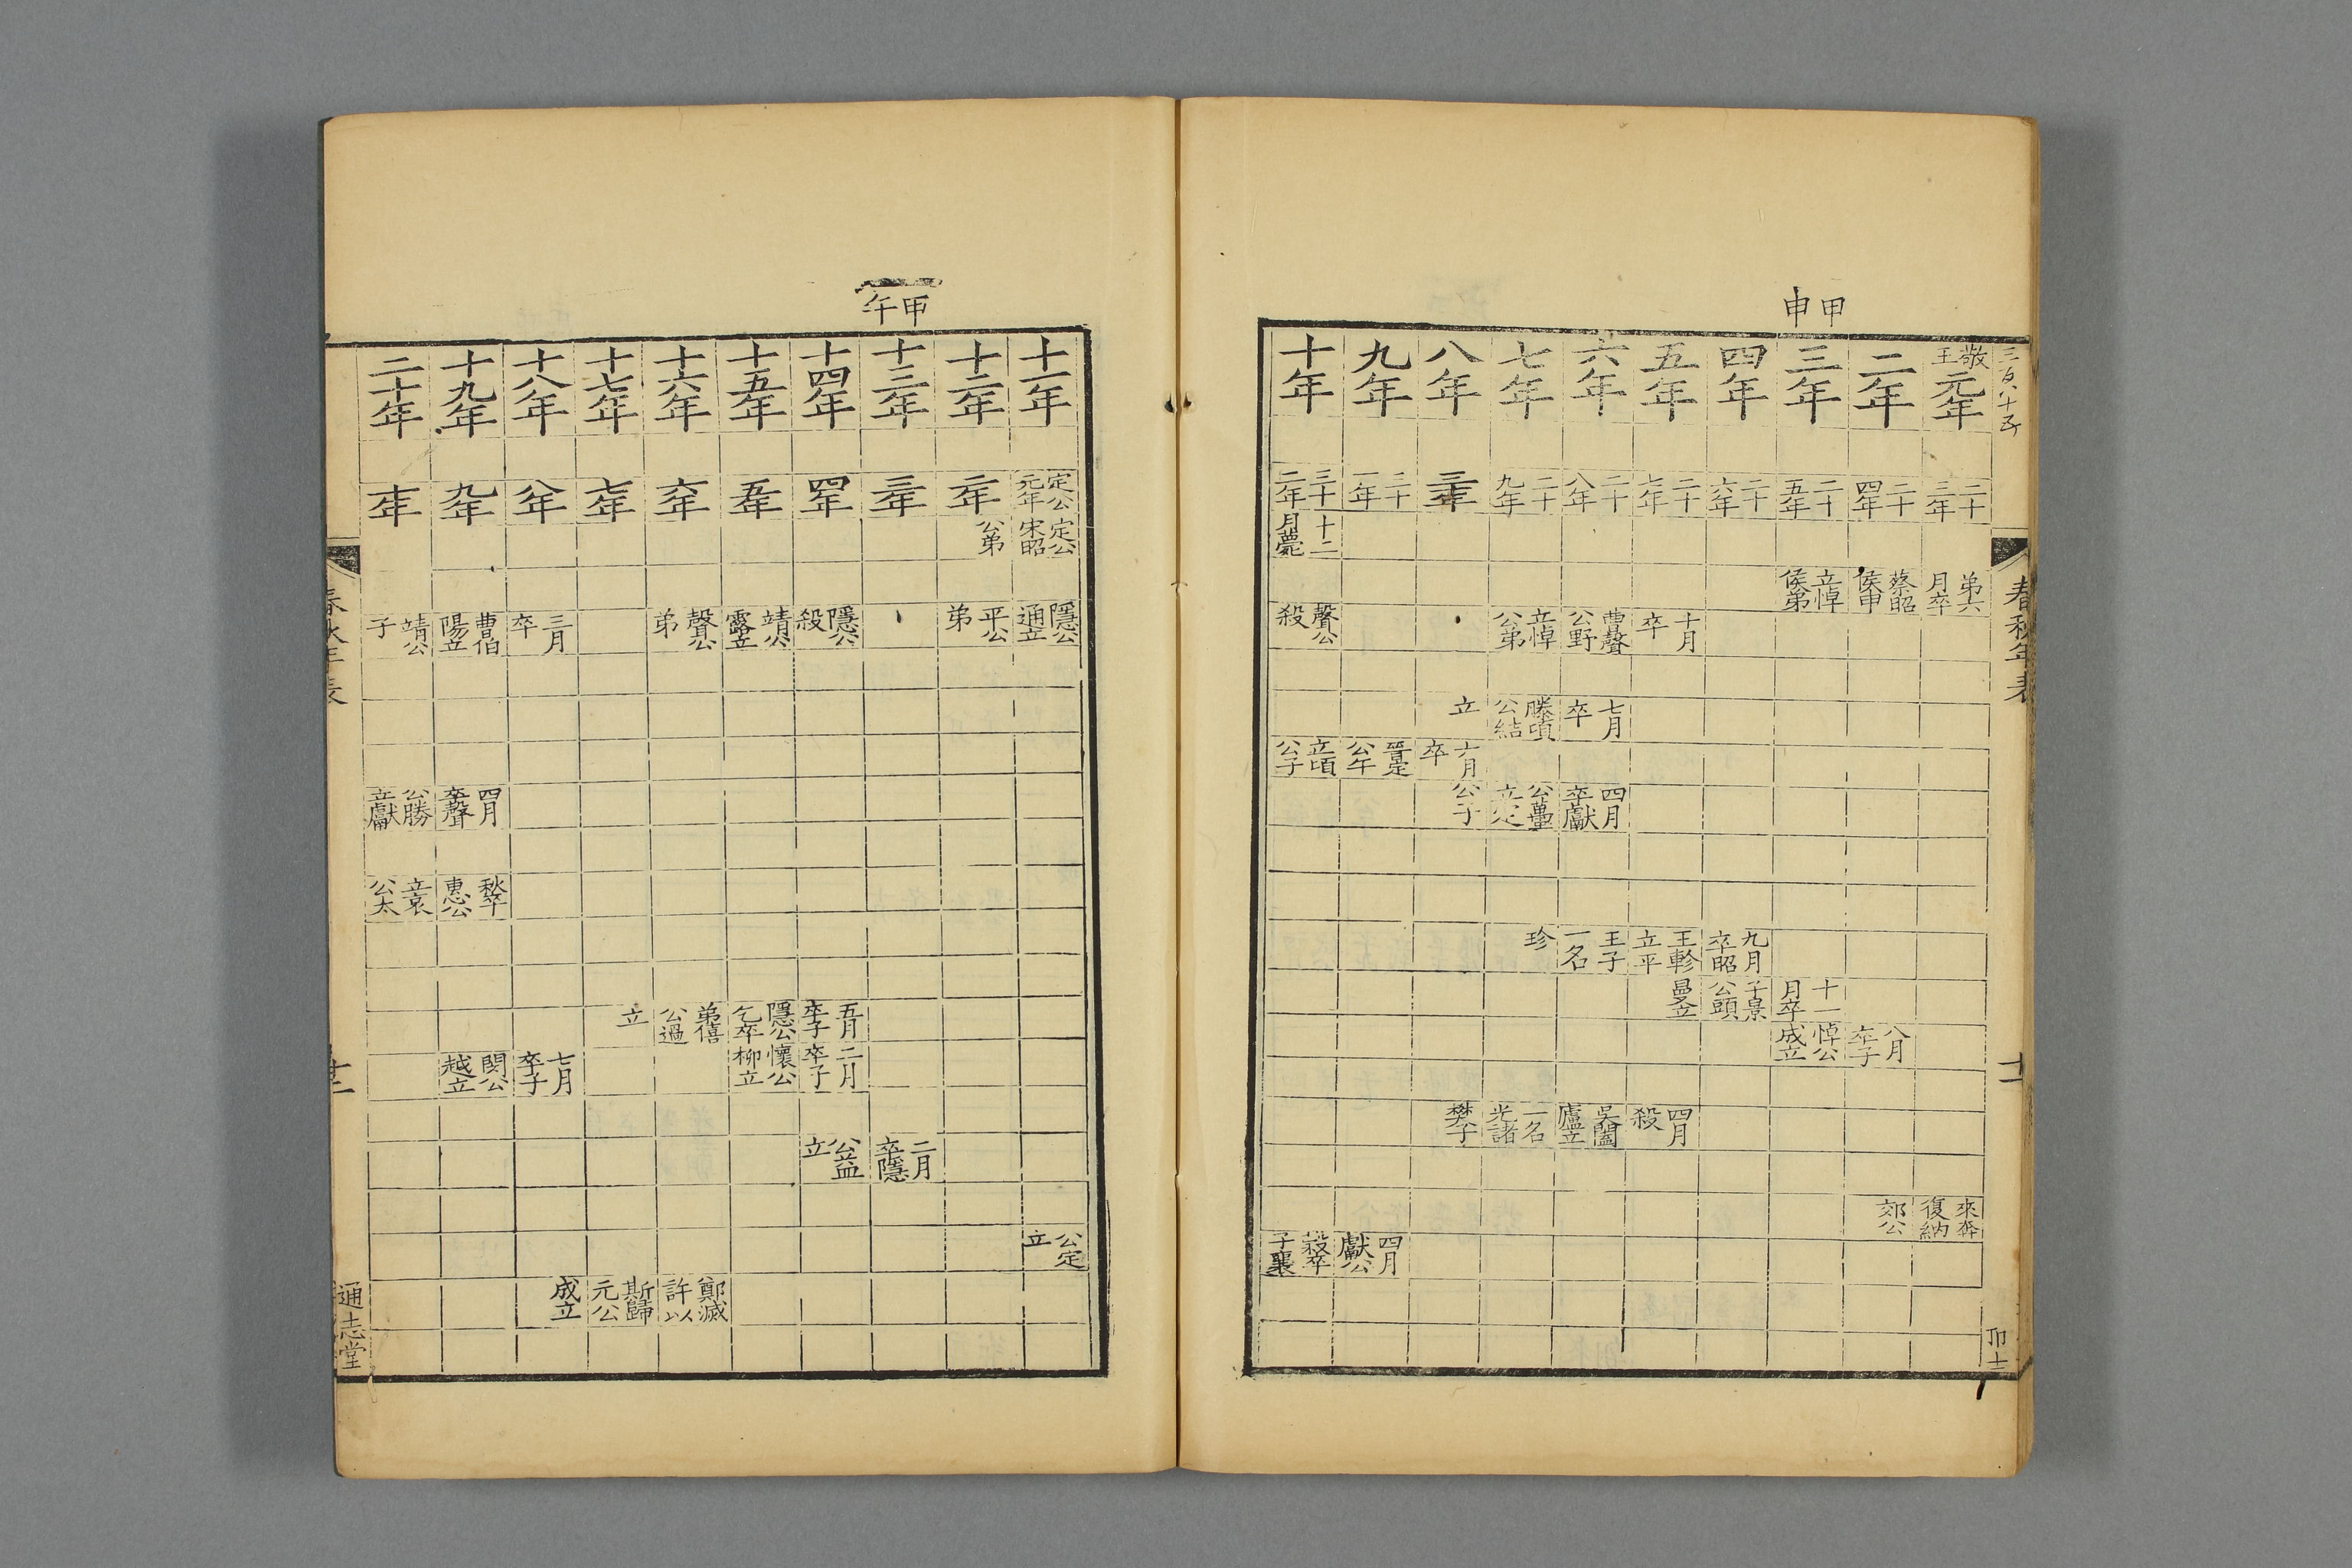 甲申
三百八十五
春秋年表
十一
敬王元年
二十三年
第六月卒
來奔復納
二年
二十四年
蔡昭侯申
八月卒子
郊公
三年
二十五年
立悼侯弟
十一月卒
悼公成立
四年
二十六年
九月卒昭
子景公頭
五年
二十七年
十月卒
王軫立平
曼立
四月殺
六年
二十八年
曹聲公野
七月卒
四月卒獻
王子一名
吳闔廬立
七年
二十九年
立悼公弟
滕頃公結
公蠆立定
珍
一名光諸
八年
三十年
立
六月卒
公子
樊子
九年
三十一年
晉定公午
四月獻公
十年
三十二年
十二月薨
聲公殺
立頃公子
穀卒子襄
甲午
十一年
定公元年
定公宋昭
隱公通立
公定立
十二年
二年
公弟
平公弟
十三年
三年
二月卒隱
十四年
四年
隱公殺
五月卒子
二月卒子
公益立
十五年
五年
靖公露立
隱公乞卒
懷公柳立
十六年
六年
聲公弟
弟僖公過
鄭滅許以
十七年
七年
立
斯歸元公
十八年
八年
三月卒
七月卒子
成立
十九年
九年
曹伯陽立
四月卒聲
秋卒惠公
閔公越立
二十年
十年
靖公子
公勝立獻
立哀公太
春秋年表
十二
通志堂